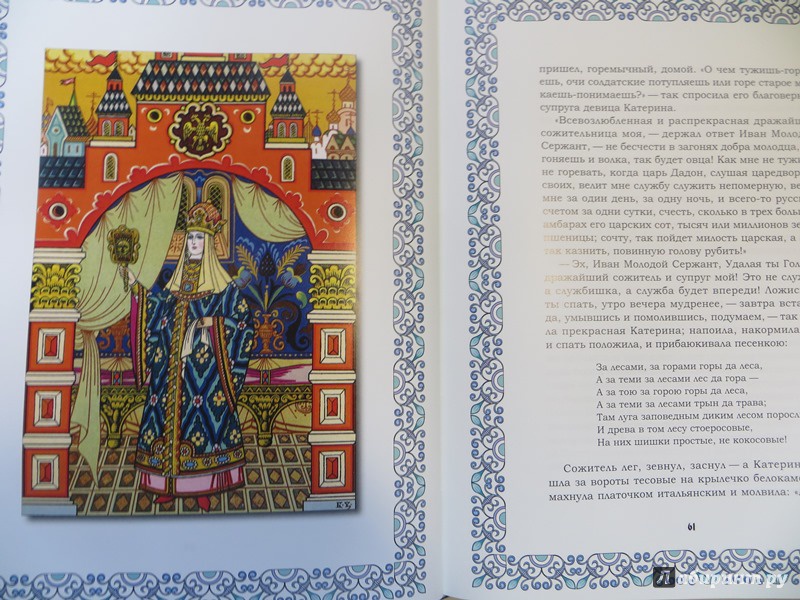 пришел, горемычный, домой. «О чем тужишь-гор
ешь, очи солдатские потупляешь или горе старое м
каешь-понимаешь?» — так спросила его благовер
супруга девица Катерина.
«Всевозлюбленная и распрекрасная дражай
сожительница моя, — держал ответ Иван Моло
Сержант, — не бесчести в загонях добра молодца,
гоняешь и волка, так будет овца! Как мне не туж
не горевать, когда царь Дадон, слушая царедвор
своих, велит мне службу служить непомерную, ве
мне за один день, за одну ночь, и всего-то русск
счетом за одни сутки, счесть, сколько в трех больш
амбарах его царских сот, тысяч или миллионов зе
пшеницы; сочту, так пойдет милость царская, а
так казнить, повинную голову рубить!»
— Эх, Иван Молодой Сержант, Удалая ты Гол
дражайший сожитель и супруг мой! Это не слу
а службишка, а служба будет впереди! Ложис
ты спать, утро вечера мудренее, — завтра вста
да, умывшись и помолившись, подумаем, — так
ла прекрасная Катерина; напоила, накормила
и спать положила, и прибаюкивала песенкою:
За лесами, за горами горы да леса,
А за теми за лесами лес да гора —
А за тою за горою горы да леса,
А за теми за лесами трын да трава;
Там луга заповедным диким лесом поросл
И древа в том лесу стоеросовые,
На них шишки простые, не кокосовые!
Сожитель лег, зевнул, заснул — а Катерин
шла за вороты тесовые на крылечко белокаме
махнула платочком итальянским и молвила: «
61
Лабиринт.ру